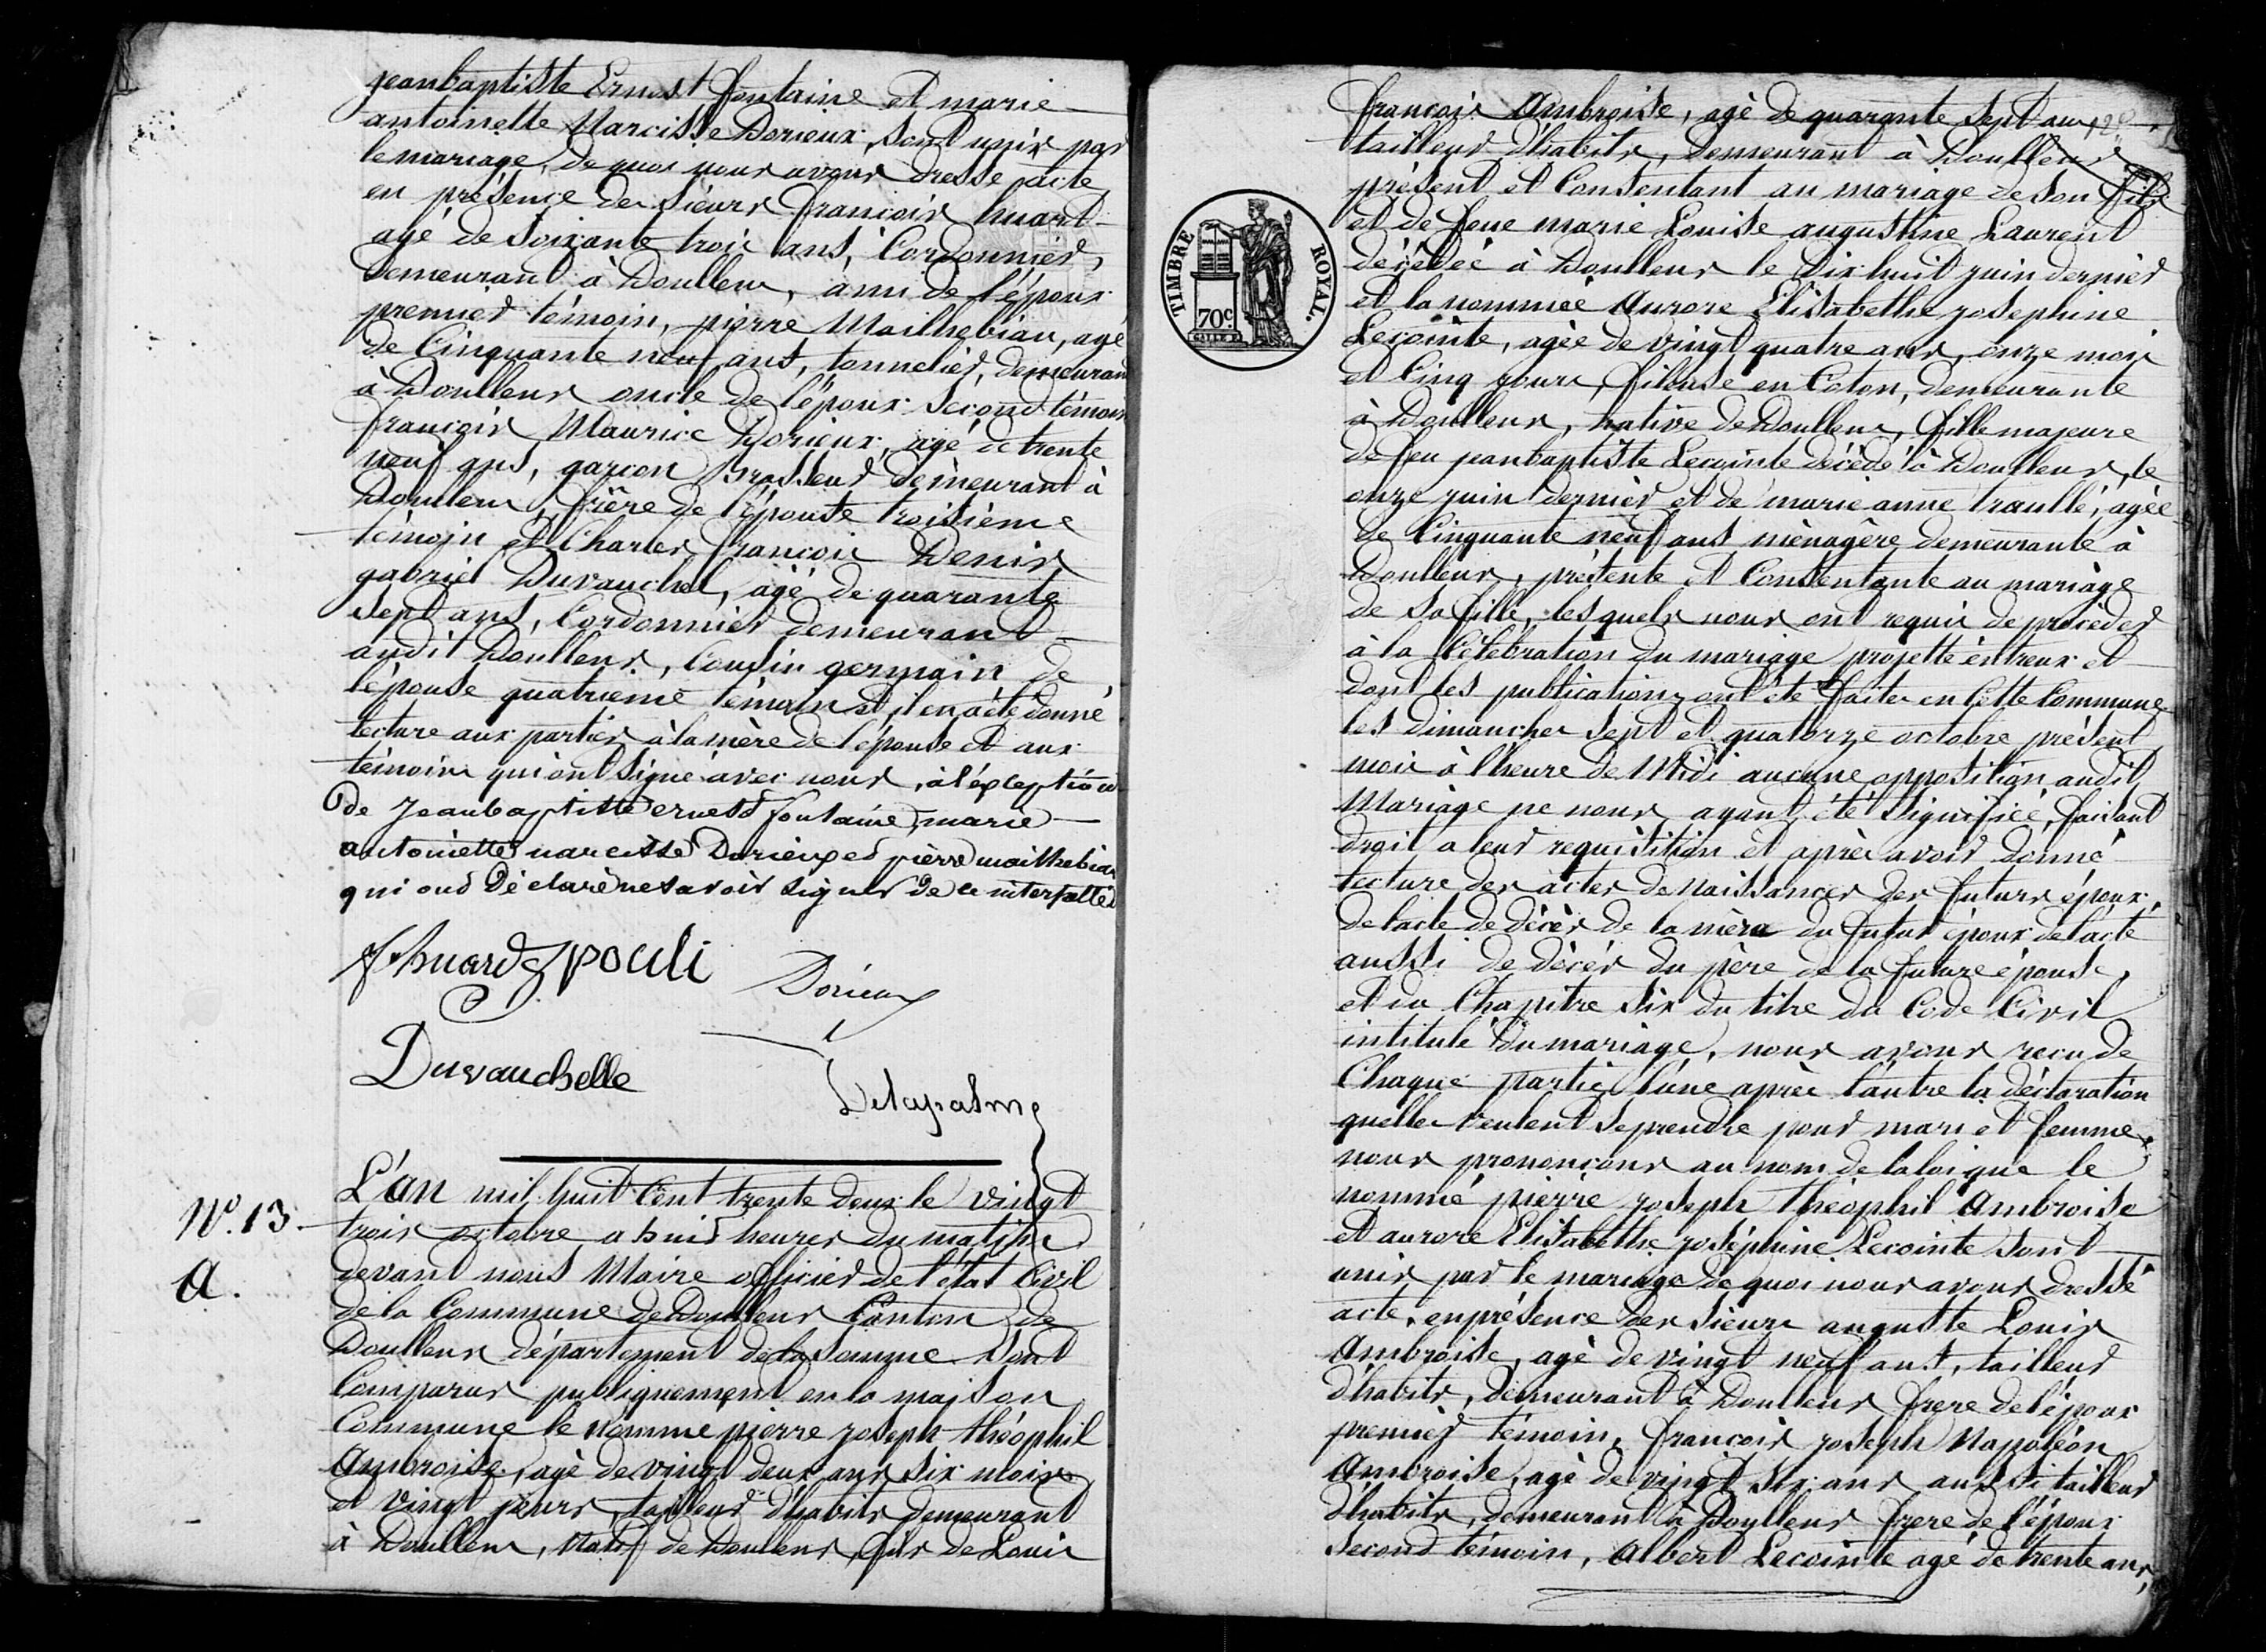 jeanbaptiste Ernest fontaine et marie
antoinette Narcisse Dorieux, sont unis par
le mariage, de quoi nous avons dressé acte
en présence des sieurs françois huart
agé de soixante trois ans, Cordonnier,
demeurant à Doullens, ami de l'époux
premier témoin, pierre Mailhebiau, agé
de Cinquante neuf ans, tonnelier, demeurant
à Doullens oncle de l'époux second témoin
françois Maurice Dorieux, agé de trente
neuf ans, garçon Brasseur demeurant à
Doullens, frère de l'épouse troisième
témoin et Charles françois Denis
gabriel Duvauchel, agé de quarante
sept ans, Cordonnier demeurant
audit Doullens, Cousin germain de
l'épouse quatrième témoin et il en a été donné
lecture aux parties à la mère de l'épouse et aux
témoins qui ont signé avec nous, à l'exception
de Jeanbaptiste ernest fontaine, marie
antoinette narcisse Dorieux et pierre mailhebiau
qui ont Déclaré ne savoir signer de ce interpellés
f huard pouli Dorieux
Duvauchelle
Delapalme
N.º 13.
A.
L'an mil huit Cent trente deux le vingt
trois octobre a huit heures du matin
devant nous Maire officier de l'état Civil
de la Commune de Doullens Canton de
Doullens département de la Somme Sont
Comparus publiquement en la maison
Commune le nommé pierre joseph théophil
Ambroise, agé de vingt deux ans six mois
et vingt jours, tailleur d'habits demeurant
à Doullens, Natif de Doullens, fils de Louis
françois Ambroise, agé de quarante sept ans,
tailleur d'habits, demeurant à Doullens
présent et Consentant au mariage de son fils
et de feue marie Louise augustine Laurent
décédée à Doullens le Dix huit juin dernier
et la nommée Aurore Elisabethe josephine
Lecointe, agée de vingt quatre ans, onze mois
et Cinq jours, fileuse en Coton, demeurante
à Doullens, native de Doullens, fille majeure
de feu jeanbaptiste Lecointe décédé à Doullens, le
onze juin dernier et de marie anne traullé, agée
de Cinquante neuf ans ménagère demeurante à
Doullens, présente et Consentante au mariage
de sa fille, lesquels nous ont requis de procéder
à la Célébration du mariage projetté entreux et
dont les publications ont été faites en Cette Commune
les dimanches sept et quatorze octobre présent
mois à l'heure de Midi aucune opposition audit
Mariage ne nous ayant été signifiée, faisant
droit a leur requisition et après avoir donné
lecture des actes de Naissances des futurs époux,
de l'acte de décès de la mère du futur époux, de l'acte
aussi de décès du père de la future épouse,
et du Chapitre Six du titre du Code Civil
intitulé du mariage, nous avons reçu de
Chaque partie l'une après l'autre la déclaration
quelles veulent se prendre pour mari et femme,
nous prononçons au nom de la loi que le
nommé pierre joseph théophil Ambroise
et aurore Elisabethe joséphine Lecointe sont
unis par le mariage de quoi nous avons dressé
acte, en présence des sieurs auguste Louis
Ambroise, agé de vingt neuf ans, tailleur
d'habits, demeurant à Doullens frere de l'époux
premier témoin, françois joseph Napoléon
Ambroise, agé de vingt six ans aussi tailleur
d'habits, demeurant à Doullens frere de l'époux
second témoin, Albert Lecointe agé de trente ans,
TIMBRE ROYAL.
70c